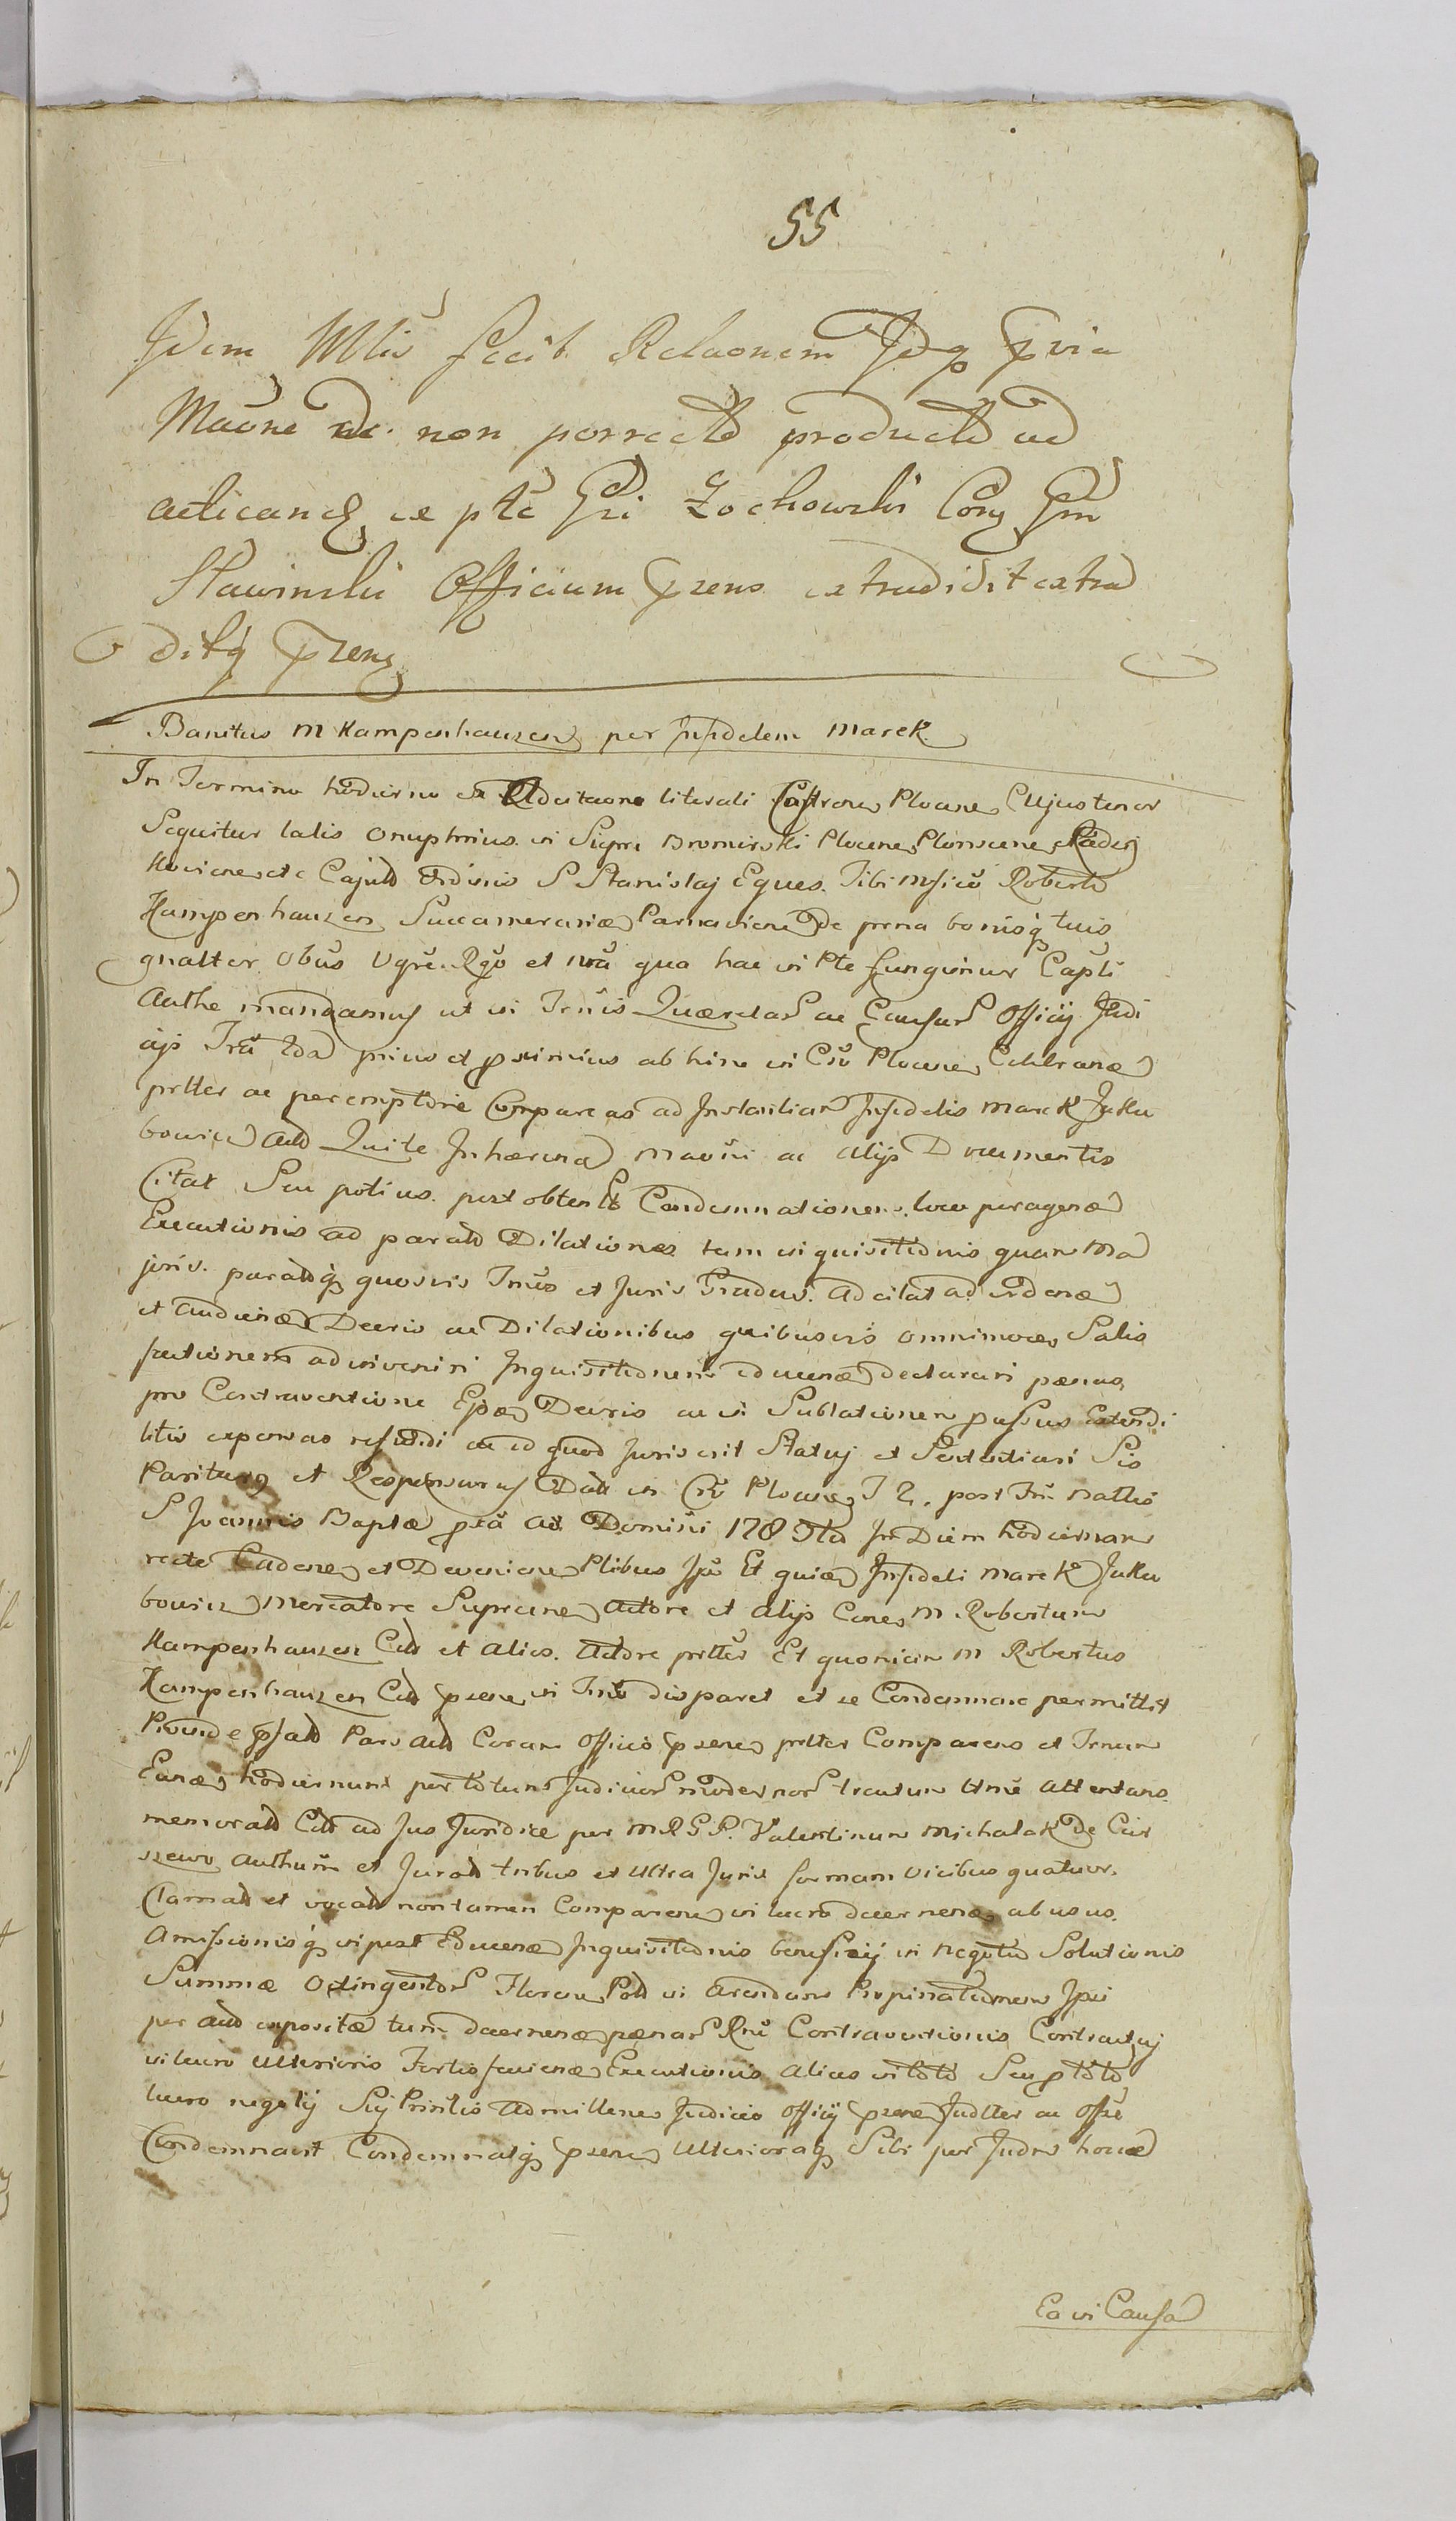 55
Idem Mltiũ fecit Relaonem Idq pvia
Maõne de non porrecto producto ad
acticand ex pte Gsi Żochowski Cong Gm
Sławinski Officium przens extradidit extra
ditq przens
Banitus M Kampenhauzen per Infidelem Marek
In Termino hodierno ex Adcitaone literali Castrens Plocens Cujus tenor
Sequitur talis Onuphrius in Supra Bromirski Plocens Plonscens
etc Capit Ordinis S Stanislaj Eques. Tibi Mfico Roberto
Kampenhauzen Succamerario Parnaviens de prena bonisq tuis
gnalter obũs Ugre. Rgo et nrã qua hac in pte fungimur Capti
Authe mandamus ut in Trnis Querelar ac Causar Officij Judi
cijs Trũ prius et proximius ab hinc in Crõ Plocens Celebrand
prlter ac peremptorie Compareas ad Instantiam Infidelis Marek Jaku
bowicz Act Qui te Inhærend Maõni ac alijs Documentis
Citat Seu potius. post obtent Condemnationem loco peragend
Executionis ad parat Dilationes tam inquisitionis quam Ma
joris. paratq quosvis Trnos et Juris Gradus. Adcitat ad vidend
et audiend Decris ac Dilationibus quibusvis omnimode Satis
factionem adinveniri Inquisitionem educend declarari pænas
pro Contraventione Ejsd Decris ac in Sublationem passus Extendi
litis expensas refundi ac id quod Juris erit Statuj et Sententiari Sis
Pariturus et Responsurus Dat in Crõ Plocens F 2. post Fm Natlis
S Joannis Baptæ pxã Aõ Domini 178 In Diem hodiernam
recte Cadens et Deveniens Ptibus Ips Et quia Infideli Marek Jaku
bowicz Mercatore Supraene Actore et alijs Cone M. Robertum
Kampenhauzen Citt et Alios. Actore prltes Et quoniam M Robertus
Kampenhauzen Citt przens in Trno disparet et se Condemnare permittit
Proinde prfatt Pars Act Coram Officio przens prlter Comparens et Trnum
Eund hodiernum per totum Judicior modernor tractum Ltme attentans.
memorat Citt ad Jus Juridice per M R G P. Valentinum Michalak de Ciir
szewo Authum et Jurat tribus et Ultra Juris formam vicibus quatuor.
Clamat et vocat non tamen Comparens in lucro decernend abusus.
Amissionisq inpost Educend Inquisitionis beneficij in Negotio Solutionis
Summæ Octingentor Floren Pol in Arendam Propinationem Ipsi
per Act expositæ tum decernend pænar Rnũ Contraventionis Contractuj
in lucro Ulterioris Fortis faciend Executionis Alias in toto Seu p toto
lucro negotij Sui Prinlis Admittens Judicio Officij przens Judlter ac Offse
Condemnavit Condemnatq przens Ulterioraq Sibi per Judm hocce
Ea in Causa